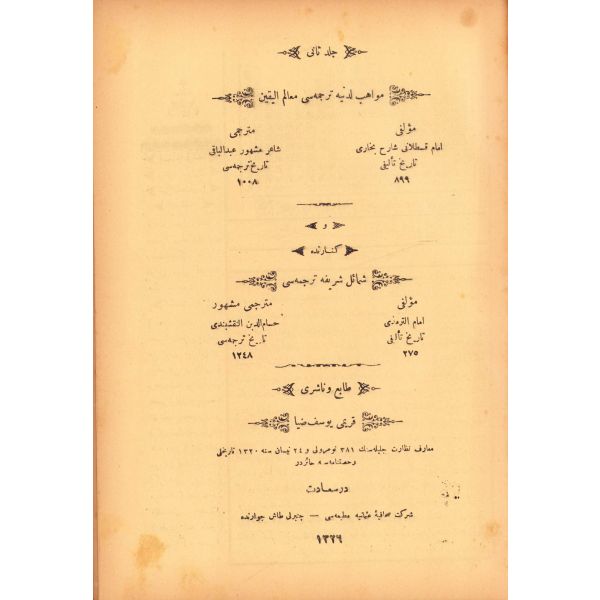 جلد ثانی
مواهب لدنیه ترجمه‌سی معالم الیقین
مؤلفی
امام قسطلانی شارح بخاری
تاریخ تألیفی
٨٩٩
مترجمی
شاعر مشهور عبدالباقی
تاریخ ترجمه‌سی
١٠٠٨
و
کنارنده
شمائل شریفه ترجمه‌سی
مؤلفی
امام الترمذی
تاریخ تألیفی
٢٧٥
مترجمی مشهور
حسام‌الدین النقشبندی
تاریخ ترجمه‌سی
١٢٤٨
طابع و ناشری
قریمی یوسف ضیا
معارف نظارت جلیله‌سنك ٣٨١ نومرولی و ٢٤ نیسان سنه ١٣٢٠ تاریخلی
رخصتنامه‌سنه حائزدر
درسعادت
شرکت صحافیهٔ عثمانیه مطبعه‌سی — چنبرلی طاش جوارنده
١٣٢٦